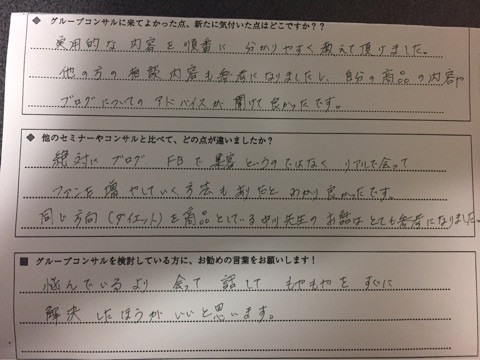 ◆ グループコンサルに来てよかった点、新たに気付いた点はどこですか？？
実用的な内容を順番に 分かりやすく教えて頂けました。
他の方の相談内容も参考になりましたし、自分の商品の内容や
ブログについてのアドバイスが聞けて良かったです。
◆ 他のセミナーやコンサルと比べて、どの点が違いましたか？
絶対に ブログ FBで集客というのではなく リアルで会って
ファンを増やしていく方法もあるだと わかり良かったです。
同じ方向（ダイエット）を商品としている中川先生のお話はとても参考になりました。
■ グループコンサルを検討している方に、お勧めの言葉をお願いします！
悩んでいるより 会って 話して もやもやを すぐに
解決したほうが いいと思います。